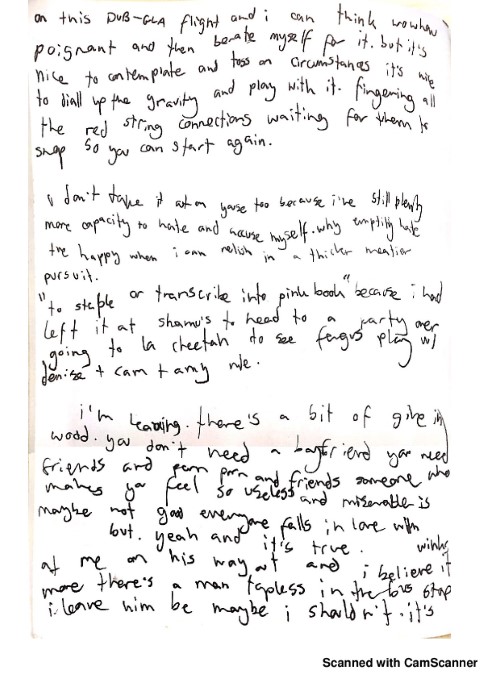 on this DUB-GLA flight and i can think wowhow
poignant and then berate myself for it. but it's
nice to contemplate and toss on circumstances it's nice
to diall up the gravity and play with it. fingering all
the red string connections waiting for them to
snap so you can start again.
i don't take it out on youse too because i've still plenty
more capacity to hate and accuse myself. why emptily hate
the happy when i can relish in a thicker meatier
pursuit.
"to staple or transcribe into pink book" because i had
left it at shamu's to head to a party over
going to la cheetah to see fergus play w/
denise + cam + amy nle.
i'm leaving. there's a bit of give in
wood. you don't need a boyfriend you need
friends and porn and friends someone who
makes you feel so useless and miserable is
maybe not good everyone falls in love with
but. yeah and it's true. winks
at me on his way out and i believe it
more there's a man topless in the bus stop
i leave him be maybe i shouldn't. it's
Scanned with CamScanner